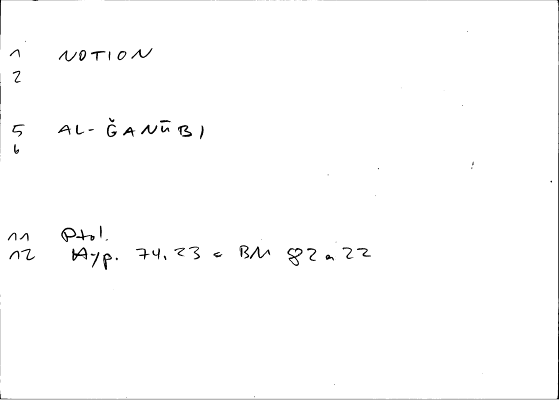 1 NOTION
2
5 AL-ĞANŪBI
6
11 Ptol.
12 Hyp. 74,23 = BM 82 a 22